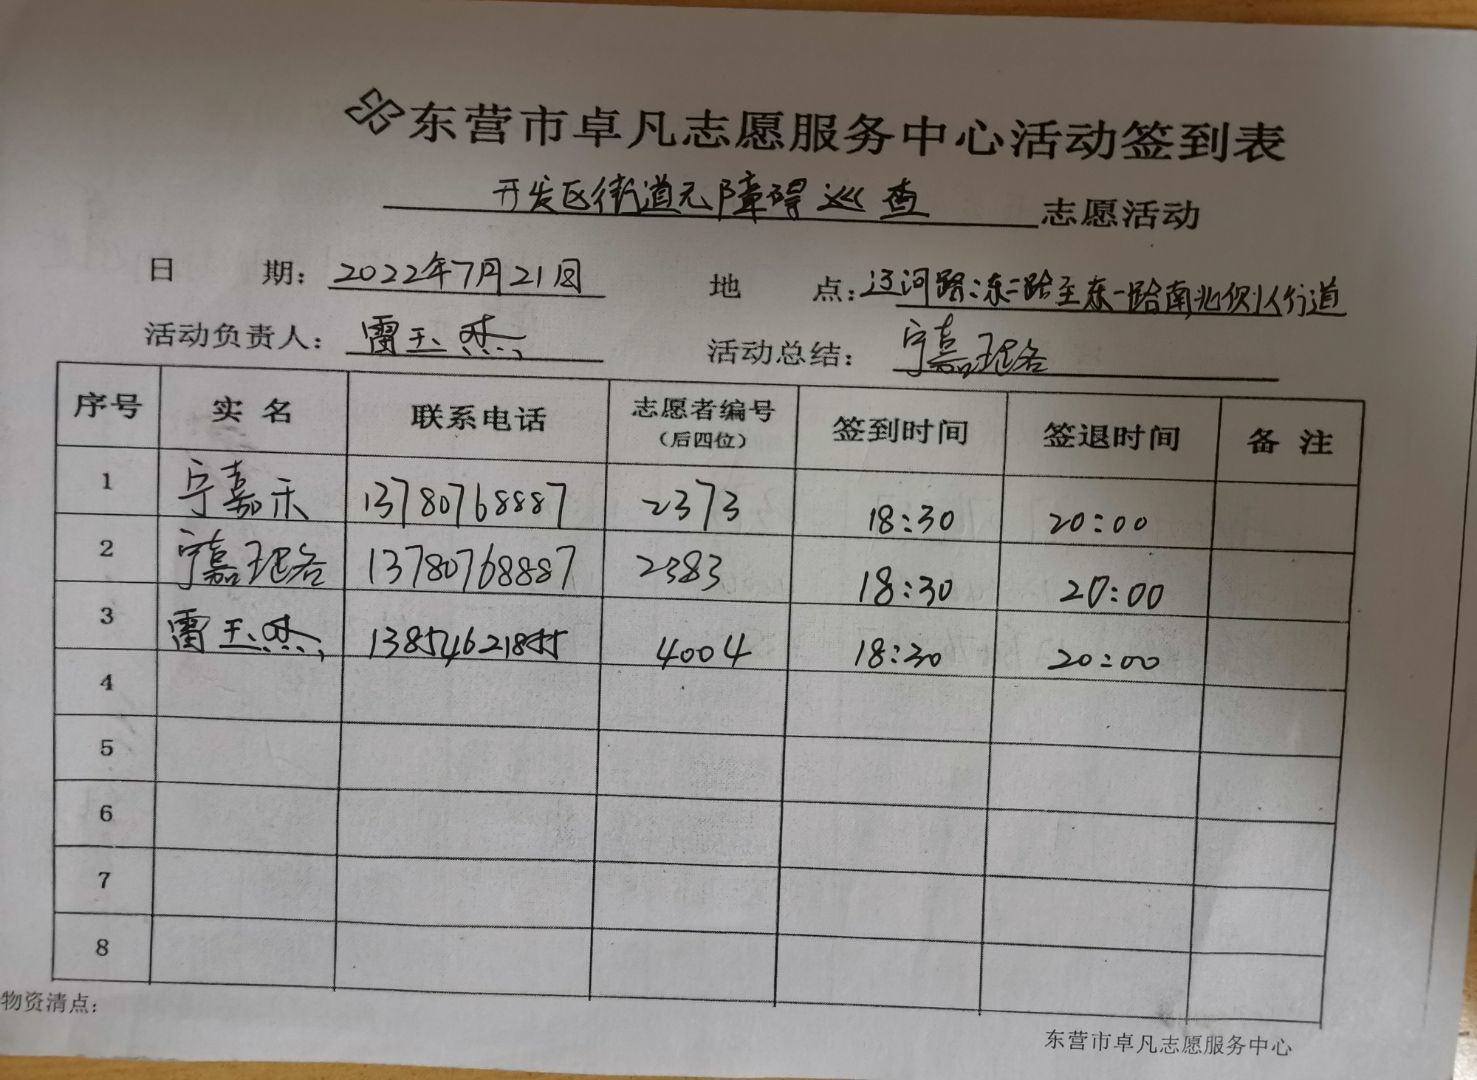 东营市卓凡志愿服务中心活动签到表
开发区街道无障碍巡查志愿活动
日期：2022年7月21日 地点：辽河路：东二路至东一路南北侧人行道
活动负责人：雷玉杰 活动总结：宁嘉珞
序号 实名 联系电话 志愿者编号（后四位） 签到时间 签退时间 备注
1 宁嘉禾 13780768887 2373 18:30 20:00
2 宁嘉 13780768887 2383 18:30 20:00
3 雷玉杰 13854621855 4004 18:30 20:00
4
5
6
7
8
物资清点：
东营市卓凡志愿服务中心